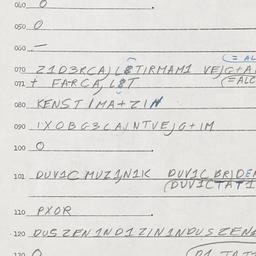 040 O
050 O
060 —
(= AL
070 Z1D3RCAJL8TIRMAM1 VEJG+A
071 + FARCAL8T (=ALC
080 KENST1MA+ZIN
090 1XOBG3CAJNTVEJG+1M
100 O
101 DUV1C MUZ1N1K DUV1C BRIDE
(DUV1CTAT1
110 PXOR
120 DUSZEN1ND1Z1N1NDUSZEN
130 O